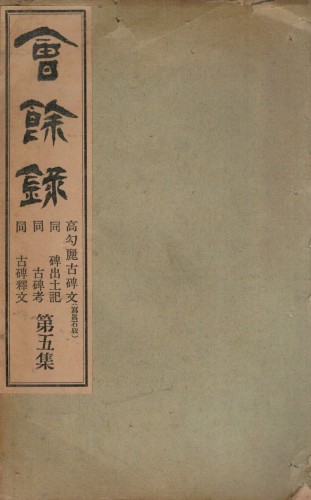 會餘錄
高勾麗古碑文(寫眞石版)
同 碑出土記
同 古碑考
同 古碑釋文
第五集